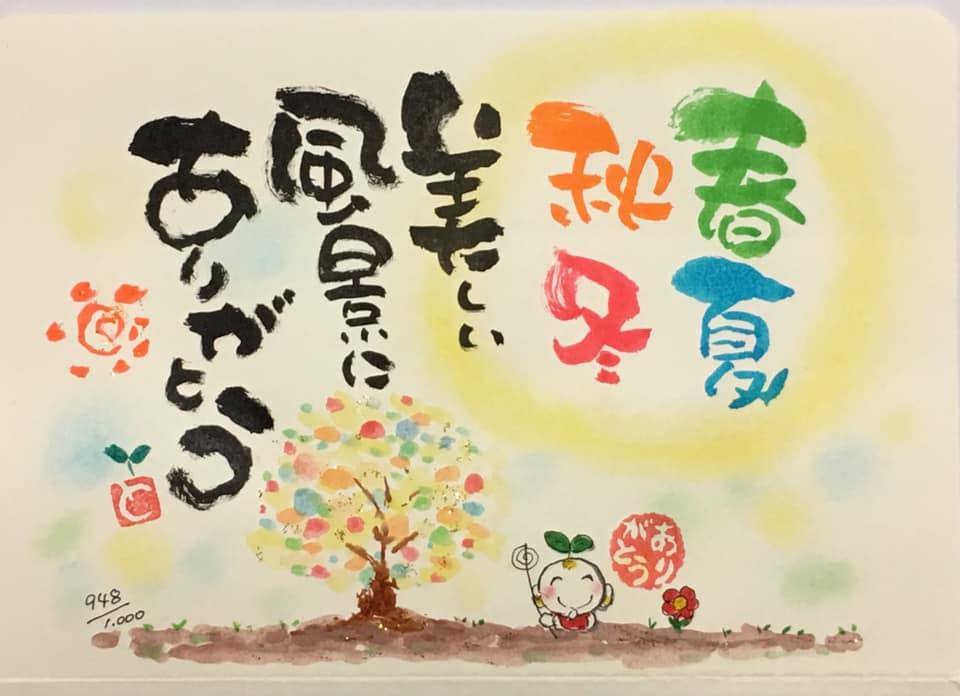 春夏
秋冬
美しい
風景に
ありがとう
ありがとう
948/1.000